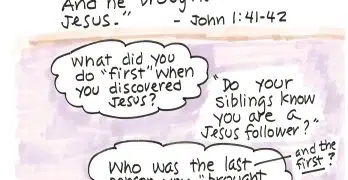 And he brought
Jesus." - John 1:41-42
What did you
do "first" when
you discovered
Jesus?
"Do your
siblings know
you are a
Jesus follower?"
Who was the last
and the
first?
person you "brought